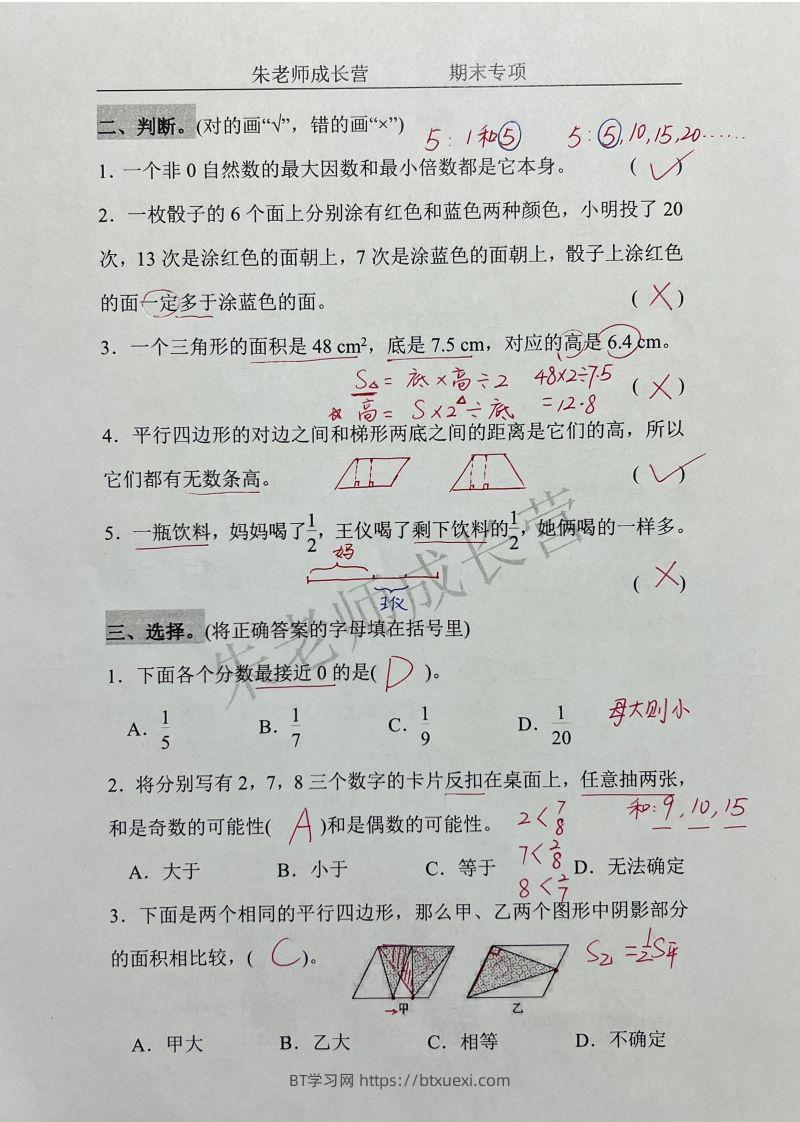 朱老师成长营 期末专项
二、判断。(对的画“√”，错的画“×”)
5：1和⑤ 5：⑤,10,15,20……
1．一个非 0 自然数的最大因数和最小倍数都是它本身。 ( √ )
2．一枚骰子的 6 个面上分别涂有红色和蓝色两种颜色，小明投了 20
次，13 次是涂红色的面朝上，7 次是涂蓝色的面朝上，骰子上涂红色
的面一定多于涂蓝色的面。 ( × )
3．一个三角形的面积是 48 cm²，底是 7.5 cm，对应的高是 6.4 cm。
S△ = 底×高÷2 48×2÷7.5 ( × )
☆高 = S×2÷底 =12.8
4．平行四边形的对边之间和梯形两底之间的距离是它们的高，所以
它们都有无数条高。 ( √ )
5．一瓶饮料，妈妈喝了1/2，王仪喝了剩下饮料的1/2，她俩喝的一样多。
妈
( × )
王仪
三、选择。(将正确答案的字母填在括号里)
1．下面各个分数最接近 0 的是( D )。
A．1/5 B．1/7 C．1/9 D．1/20 母大则小
2．将分别写有 2，7，8 三个数字的卡片反扣在桌面上，任意抽两张，
和:9,10,15
和是奇数的可能性( A )和是偶数的可能性。 2<7 8
A．大于 B．小于 C．等于 7<2 8 D．无法确定
8<2 7
3．下面是两个相同的平行四边形，那么甲、乙两个图形中阴影部分
的面积相比较，( C )。 S乙=1/2S平
→甲 乙
A．甲大 B．乙大 C．相等 D．不确定
BT学习网 https://btxuexi.com
朱老师成长营